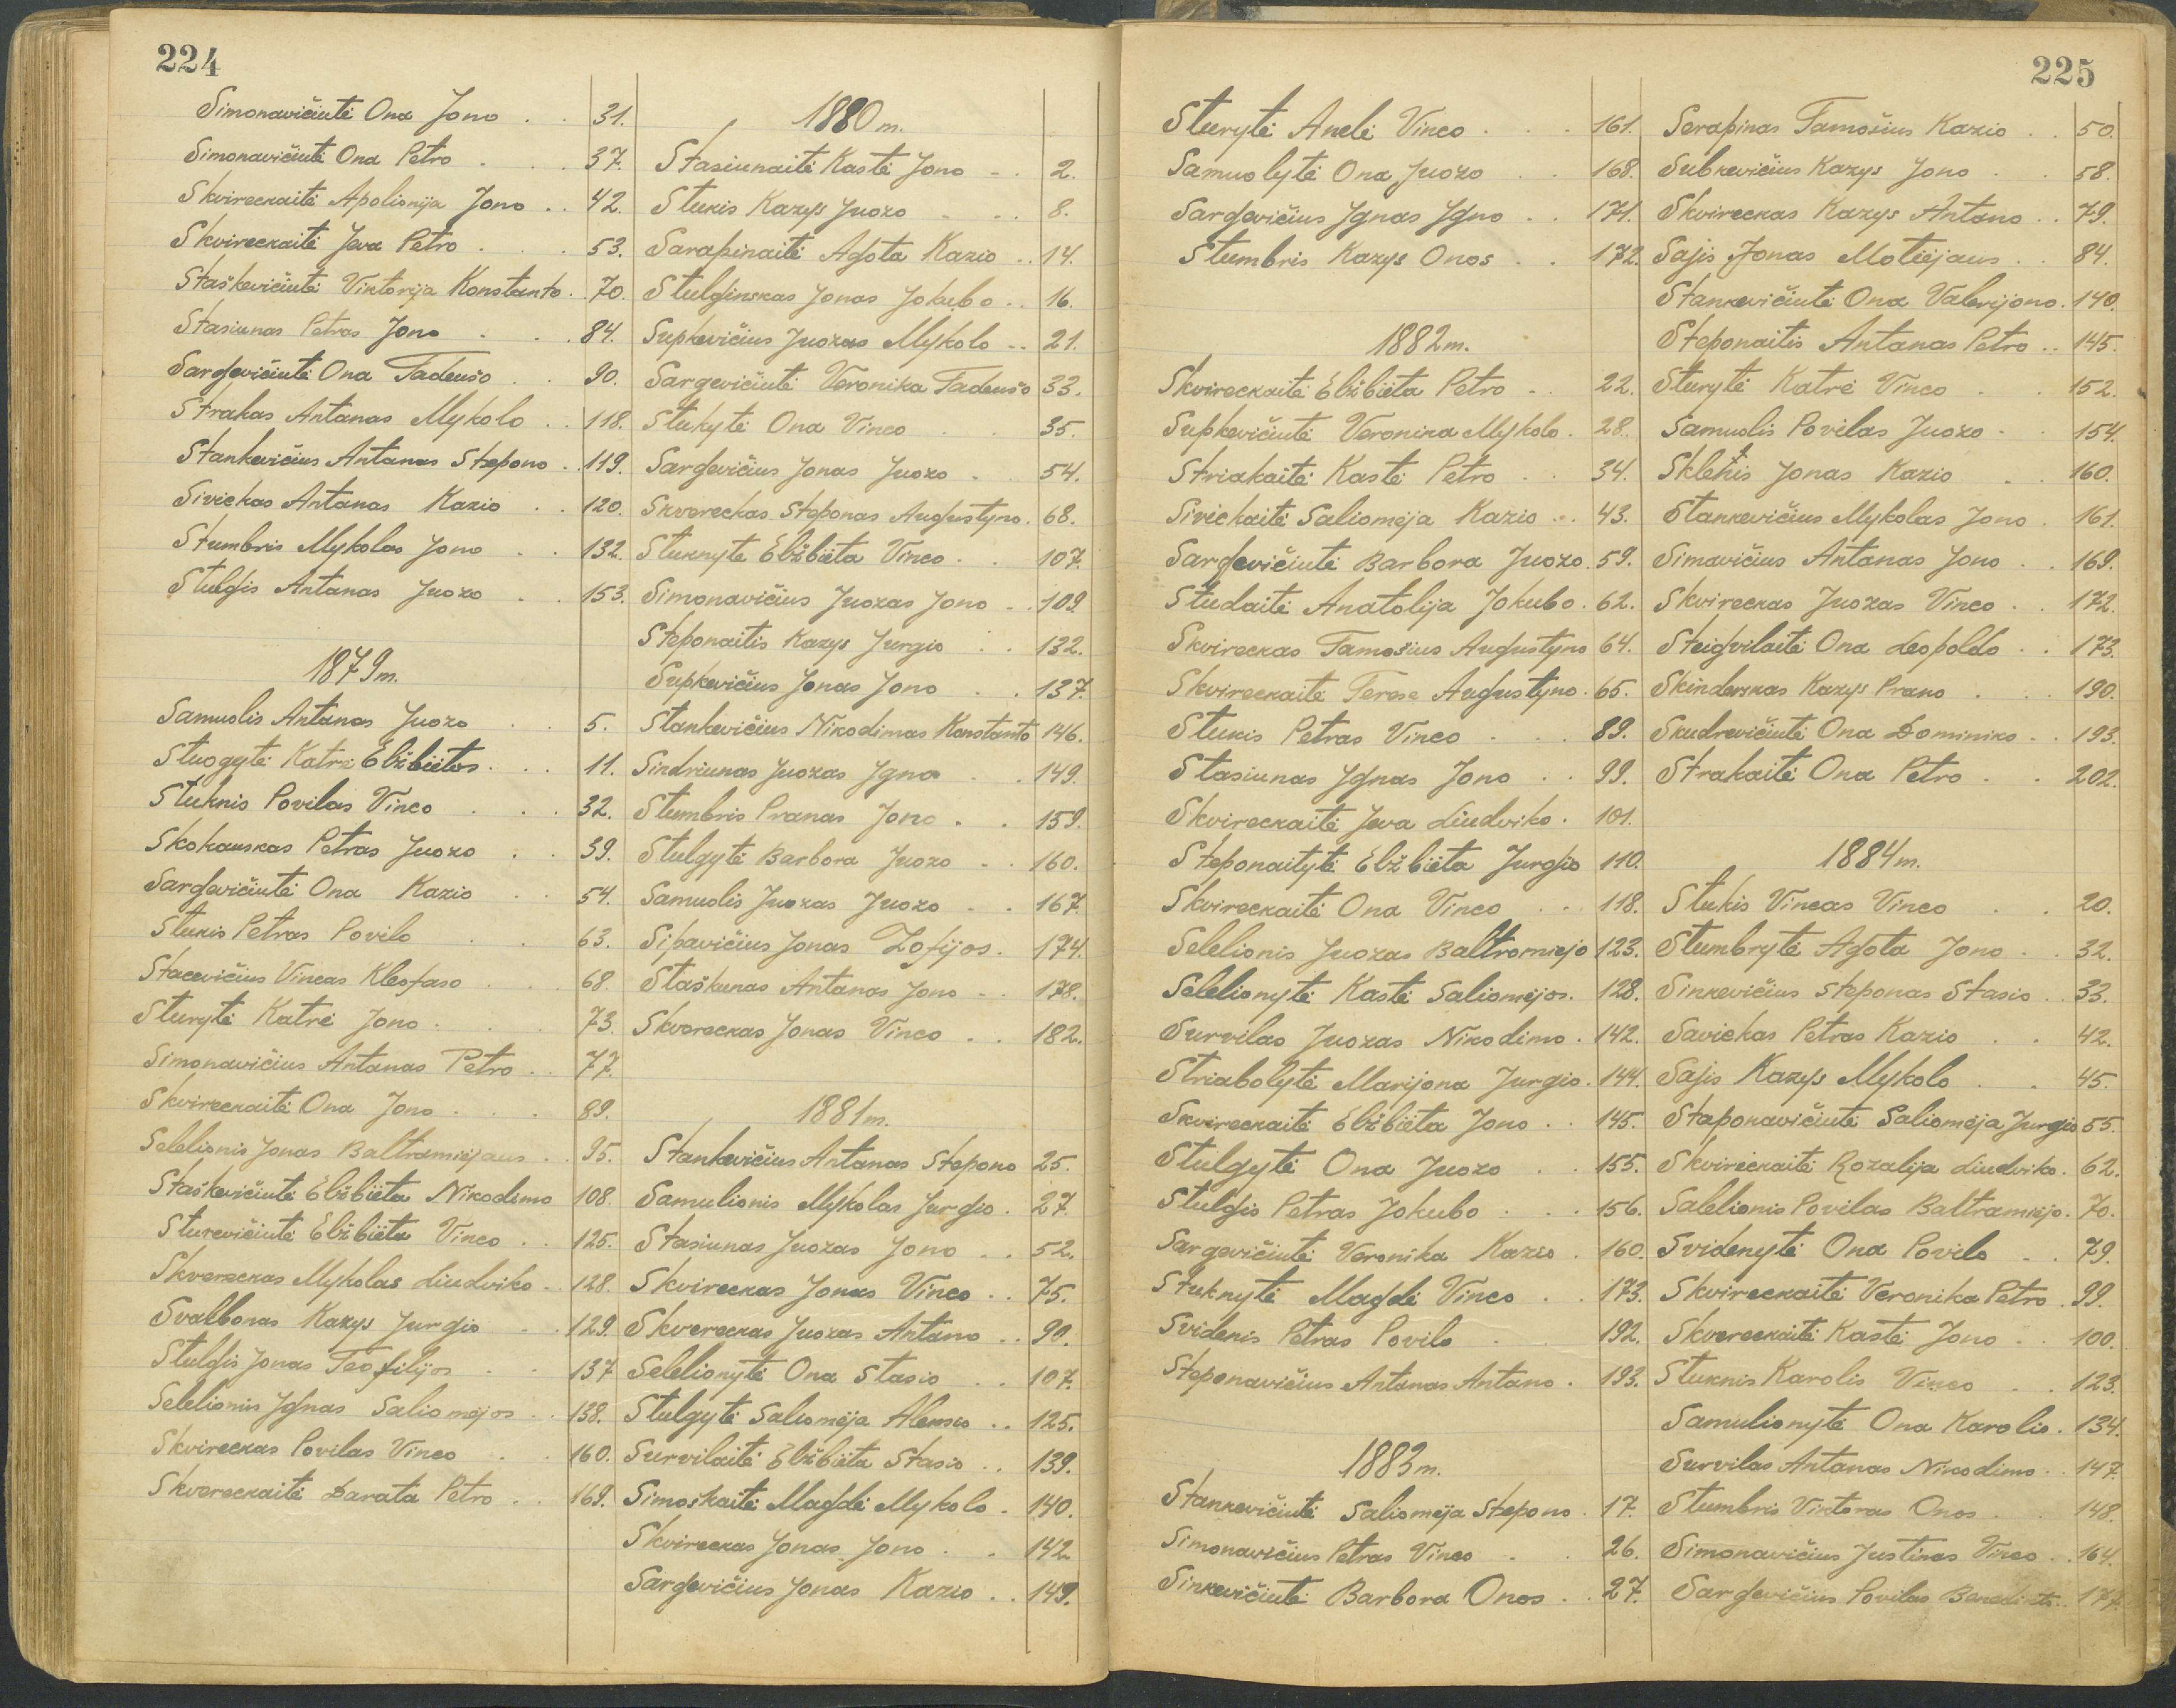 224
Simonavičiutė Ona Jono . . 31.
Simonavičiutė Ona Petro . . . 37.
Skvireckaitė Apolionija Jono . . 42.
Skvireckaitė Jeva Petro . . . 53.
Staškevičiutė Viktorija Konstanto . . 70.
Stasiunas Petras Jono . . . 84.
Sargevičiutė Ona Tadeušo . . 90.
Strakas Antanas Mykolo . . 118.
Stankevičius Antanas Stepono . . 119.
Sivickas Antanas Kazio . . 120.
Stumbris Mykolas Jono . . 132.
Stulgis Antanas Juozo . . 153.
1879 m.
Samuolis Antanas Juozo . . 5.
Stuogytė Katrė Elžbietos . . . 11.
Stuknis Povilas Vinco . . . 32.
Skokauskas Petras Juozo . . 39.
Sargevičiutė Ona Kazio . . 54.
Stukis Petras Povilo . . 63.
Stacevičius Vincas Kleofaso . . . 68.
Sturytė Katrė Jono . . . 73.
Simonavičius Antanas Petro . . 77.
Skvireckaitė Ona Jono . . . 89.
Selelionis Jonas Baltramiejaus . . 95.
Staškevičiutė Elžbieta Nikodemo 108.
Sturevičiutė Elžbieta Vinco . . 125.
Skvereckas Mykolas Liudviko . . 128.
Svalbonas Kazys Jurgio . . 129.
Stulgis Jonas Teofilijos . . 137
Selelionis Ignas Saliomėjos . . 138.
Skvireckas Povilas Vinco . . 160.
Skvereckaitė Darata Petro . . 169.
1880 m.
Stasiunaitė Kastė Jono . . 2.
Stukis Kazys Juozo . . . 8.
Sarapinaitė Agota Kazio . . 14.
Stulginskas Jonas Jokubo . . 16.
Supkevičius Juozas Mykolo . . 21.
Sargevičiutė Veronika Tadeušo 33.
Stukytė Ona Vinco . . 35.
Sargevičius Jonas Juozo . . 54.
Skvereckas Steponas Augustyno . 68.
Stuknyte Elžbieta Vinco . . 107.
Simonavičius Juozas Jono . . 109
Steponaitis Kazys Jurgio . . 132.
Supkevičius Jonas Jono . . 137.
Stankevičius Nikodimas Konstanto 146.
Sindriunas Juozas Igno . . 149.
Stumbris Pranas Jono . . 159.
Stulgytė Barbora Juozo . . 160.
Samuolis Juozas Juozo . . 167.
Sipavičius Jonas Zofijos . 174.
Staškunas Antanas Jono . . 178.
Skvereckas Jonas Vinco . . 182.
1881 m.
Stankevičius Antanas Stepono 25.
Samulionis Mykolas Jurgio . 27.
Stasiunas Juozas Jono . . 52.
Skvireckas Jonas Vinco . . 75.
Skvereckas Juozas Antano . . 90.
Selelionytė Ona Stasio . . 107.
Stulgytė Saliomėja Alekso . . 125.
Survilaitė Elžbieta Stasio . . 139.
Simoškaitė Magdė Mykolo . 140.
Skvireckas Jonas Jono . . 142
Sargevičius Jonas Kazio . . 149.
225
Sturytė Anelė Vinco . . . 161.
Samuolytė Ona Juozo . . 168.
Sargevičius Ignas Igno . . 171.
Stumbris Kazys Onos . . 172.
1882 m.
Skvireckaitė Elžbieta Petro . . 22.
Supkevičiutė Veronika Mykolo . 28.
Striakaitė Kastė Petro . . 34.
Sivickaitė Saliomėja Kazio . . 43.
Sargevičiutė Barbora Juozo . 59.
Studaitė Anatolija Jokubo . 62.
Skvireckas Tamošius Augustyno 64.
Skvireckaitė Terese Augustyno . 65.
Stukis Petras Vinco . . . 89.
Stasiunas Ignas Jono . . 99.
Skvireckaitė Jeva Liudviko . 101.
Steponaitytė Elžbieta Jurgio 110.
Skvireckaitė Ona Vinco . . 118.
Selelionis Juozas Baltromiejo 123.
Selelionytė Kastė Saliomėjos . 128.
Survilas Juozas Nikodimo . 142.
Striabolytė Marijona Jurgio . 144.
Skvireckaitė Elžbieta Jono . . 145.
Stulgytė Ona Juozo . . 155.
Stulgis Petras Jokubo . . . 156.
Sargevičiutė Veronika Kazio . 160.
Stuknytė Magdė Vinco . . 173.
Svidenis Petras Povilo . 192.
Steponavičius Antanas Antano . 193.
1883 m.
Stankevičiutė Saliomėja Stepono . 17.
Simonavičius Petras Vinco . . 26.
Sinkevičiutė Barbora Onos . . 27.
Serapinas Tamošius Kazio . . 50.
Subkevičius Kazys Jono . . 58.
Skvireckas Kazys Antano . . 79.
Sajis Jonas Motiejaus . . 84.
Stankevičiutė Ona Valerijono . 140.
Steponaitis Antanas Petro . . 145.
Sturytė Katrė Vinco . . 152.
Samuolis Povilas Juozo . . 154.
Jonas Kazio . . 160.
Stankevičius Mykolas Jono . 161.
Simavičius Antanas Jono . . 169.
Skvireckas Juozas Vinco . . 172.
Steigvilaitė Ona Leopoldo . . 173.
Skinderskas Kazys Prano . . . 190.
Skudravičiutė Ona Dominiko . . 193.
Strakaitė Ona Petro . . 202.
1884 m.
Stukis Vincas Vinco . . 20.
Stumbrytė Agota Jono . . 32.
Sinkevičius Steponas Stasio . . 33.
Savickas Petras Kazio . . 42.
Sajis Kazys Mykolo . . 45.
Staponavičiutė Saliomėja Jurgio 55.
Skvireckaitė Rozalija Liudviko . 62.
Salelionis Povilas Baltramiejo . 70.
Svidenytė Ona Povilo . . 79.
Skvireckaitė Veronika Petro . 99.
Skvereckaitė Kastė Jono . . 100.
Stuknis Karolis Vinco . . 123.
Samulionytė Ona Karolio . 134.
Survilas Antanas Nikodimo . . 147.
Stumbris Viktoras Onos . . 148.
Simonavičius Justinas Vinco . . 164.
Sargevičius Povilas . . 177.